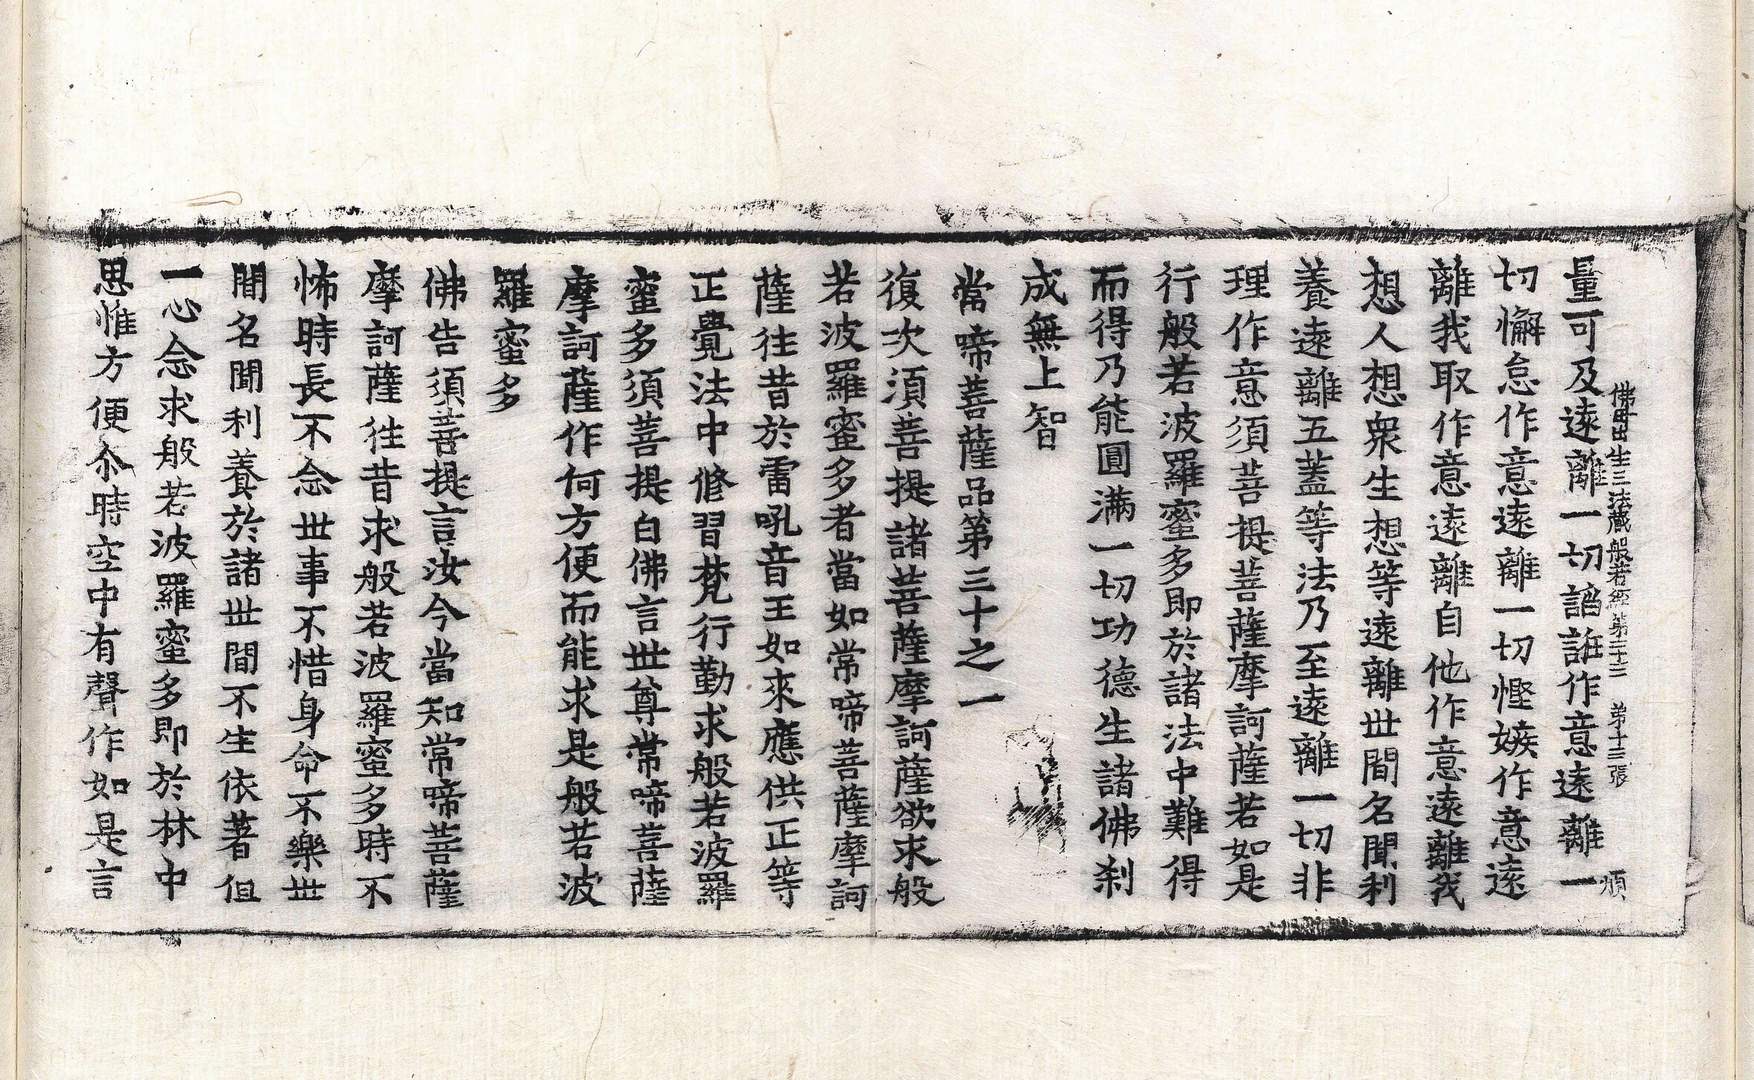 佛母出生三法藏般若經第二十二 第十三張 煩
量可及遠離一切諂誑作意遠離一
切懈怠作意遠離一切慳嫉作意遠
離我取作意遠離自他作意遠離我
想人想衆生想等遠離世間名聞利
養遠離五蓋等法乃至遠離一切非
理作意須菩提菩薩摩訶薩若如是
行般若波羅蜜多即於諸法中難得
而得乃能圓滿一切功德生諸佛刹
成無上智
常啼菩薩品第三十之一
復次須菩提諸菩薩摩訶薩欲求般
若波羅蜜多者當如常啼菩薩摩訶
薩往昔於雷吼音王如來應供正等
正覺法中修習梵行勤求般若波羅
蜜多須菩提白佛言世尊常啼菩薩
摩訶薩作何方便而能求是般若波
羅蜜多
佛告須菩提言汝今當知常啼菩薩
摩訶薩往昔求般若波羅蜜多時不
怖時長不念世事不惜身命不樂世
間名聞利養於諸世間不生依著但
一心念求般若波羅蜜多即於林中
思惟方便尒時空中有聲作如是言